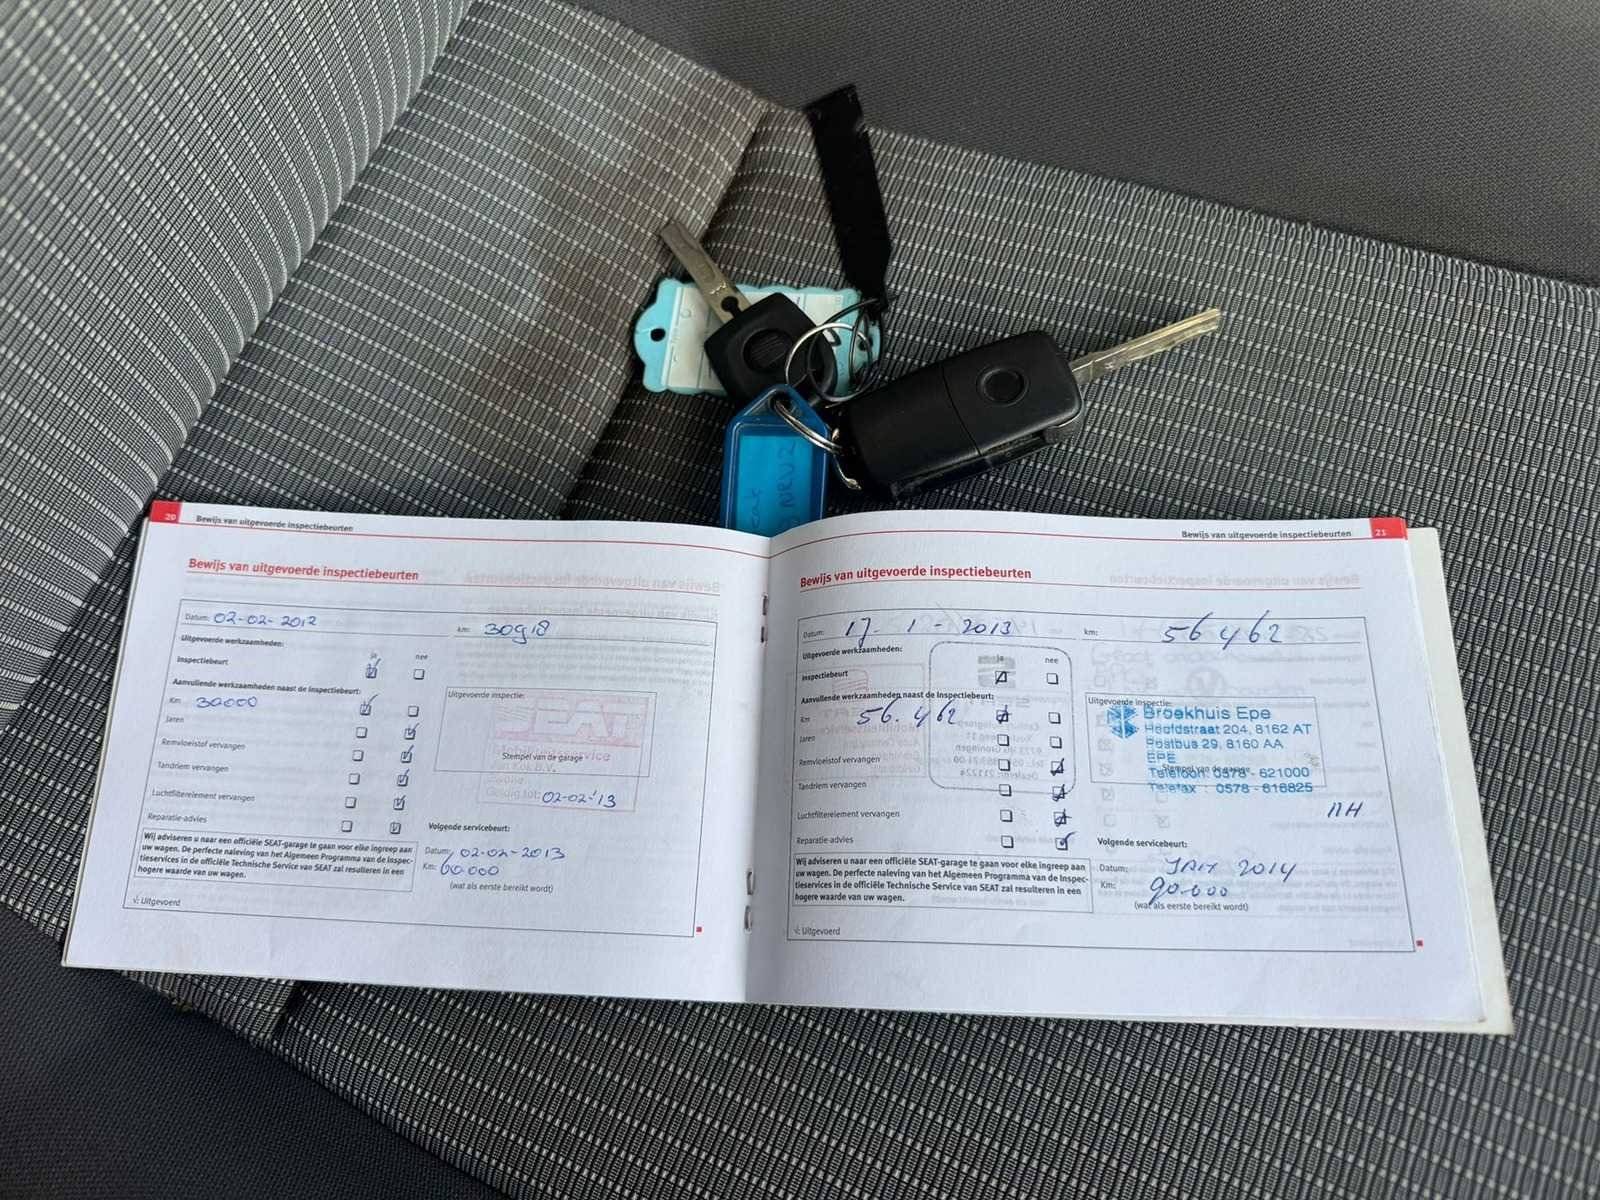 NRU2
20 Bewijs van uitgevoerde inspectiebeurten
Bewijs van uitgevoerde inspectiebeurten
Datum: 02-02-2012 km: 30918
Uitgevoerde werkzaamheden:
ja nee
Inspectiebeurt
Aanvullende werkzaamheden naast de Inspectiebeurt:
Km 30000
Jaren
Remvloeistof vervangen
Tandriem vervangen
Luchtfilterelement vervangen
Reparatie-advies
Uitgevoerde inspectie:
SEAT
Mobiliteitsservice
Stempel van de garage
Geldig tot: 02-02-'13
Volgende servicebeurt:
Datum: 02-02-2013
Km: 60.000
(wat als eerste bereikt wordt)
Wij adviseren u naar een officiële SEAT-garage te gaan voor elke ingreep aan
uw wagen. De perfecte naleving van het Algemeen Programma van de Inspec-
tieservices in de officiële Technische Service van SEAT zal resulteren in een
hogere waarde van uw wagen.
√: Uitgevoerd
Bewijs van uitgevoerde inspectiebeurten 21
Bewijs van uitgevoerde inspectiebeurten
Datum: 17-1-2013 km: 56462
Uitgevoerde werkzaamheden:
ja nee
Inspectiebeurt
Aanvullende werkzaamheden naast de Inspectiebeurt:
Km 56.462
Jaren
Remvloeistof vervangen
Tandriem vervangen
Luchtfilterelement vervangen
Reparatie-advies
Uitgevoerde inspectie:
Broekhuis Epe
Hoofdstraat 204, 8162 AT
Postbus 29, 8160 AA
EPE
Stempel van de garage
Telefoon: 0578 - 621000
Telefax : 0578 - 616825
Volgende servicebeurt:
Datum: 2014
Km: 90.000
(wat als eerste bereikt wordt)
Wij adviseren u naar een officiële SEAT-garage te gaan voor elke ingreep aan
uw wagen. De perfecte naleving van het Algemeen Programma van de Inspec-
tieservices in de officiële Technische Service van SEAT zal resulteren in een
hogere waarde van uw wagen.
√: Uitgevoerd